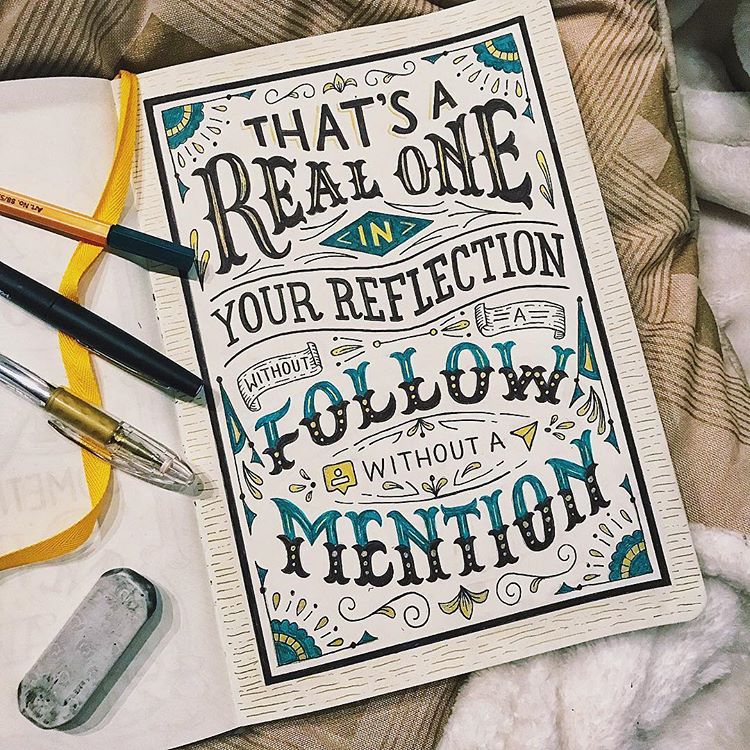 THAT'S A
REAL ONE
<IN>
YOUR REFLECTION
WITHOUT A
FOLLOW
WITHOUT A
MENTION
Art. No. 88/5